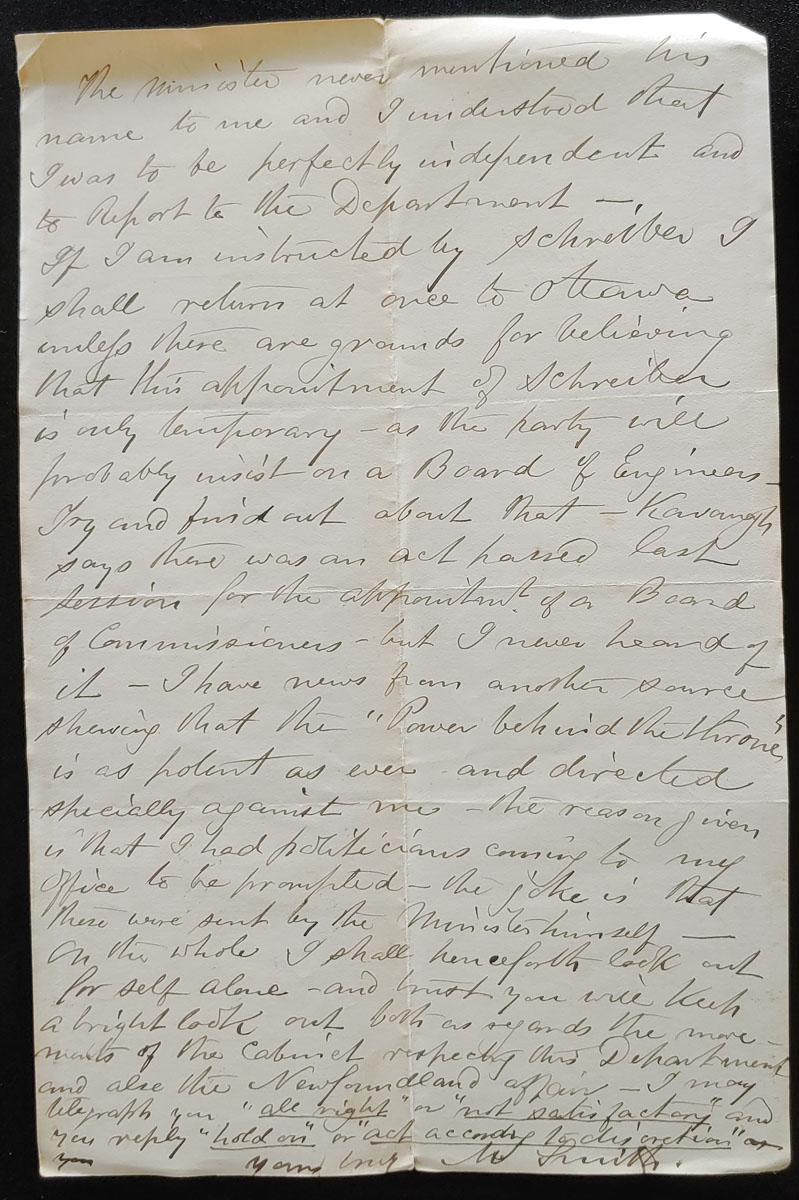 The Minister never mentioned his
name to me and I understood that
I was to be perfectly independent and
to Report to the Department —
If I am instructed by Schreiber I
shall return at once to Ottawa
unless there are grounds for believing
that this appointment of Schreiber
is only temporary - as the party will
probably insist on a Board of Engineers -
Try and find out about that - Kavanagh
says there was an act passed last
session for the appointmt. of a Board
of Commissioners - but I never heard of
it - I have news from another source
shewing that the "Power behind the throne"
is as potent as ever and directed
specially against me - the reason given
is that I had politicians coming to my
office to be prompted - the joke is that
these were sent by the Minister himself —
On the whole I shall henceforth look out
for self alone - and trust you will keep
a bright look out both as regards the move-
ments of the Cabinet respectg this Department
and also the Newfoundland affair - I may
telegraph you "all right" or "not satisfactory" and
you reply "hold on" or "act accordg to discretion" or
you yours truly M Smith.